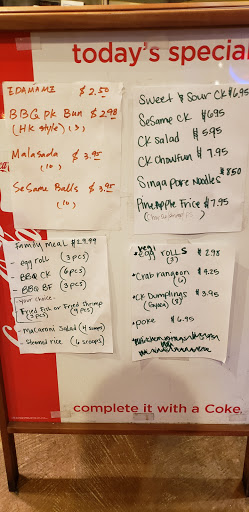 today's special
EDAMAME $2.50
BBQ PK Bun $2.98
(HK style) (3)
Malasada $3.95
(10)
SeSame Balls $3.95
(10)
Sweet & Sour CK $6.95
SeSame CK $6.95
CK Salad $5.95
CK Chowfun $7.95
Singapore Noodles $8.50
PineApple Price $7.95
Family Meal $29.99
- egg roll (3 pcs)
- BBQ CK (6 pcs)
- BBQ BF (3 pcs)
Your choice.
Fried Fish or Fried Shrimp
(3 pcs) (9 pcs)
- Macaroni Salad (4 scoops)
- Steamed rice (6 scoops)
egg ROLLS $2.98
(3)
• Crab rangoon $4.25
(6)
• CK Dumplings $3.95
(Gyoza) (8)
• poke $6.95
complete it with a Coke.